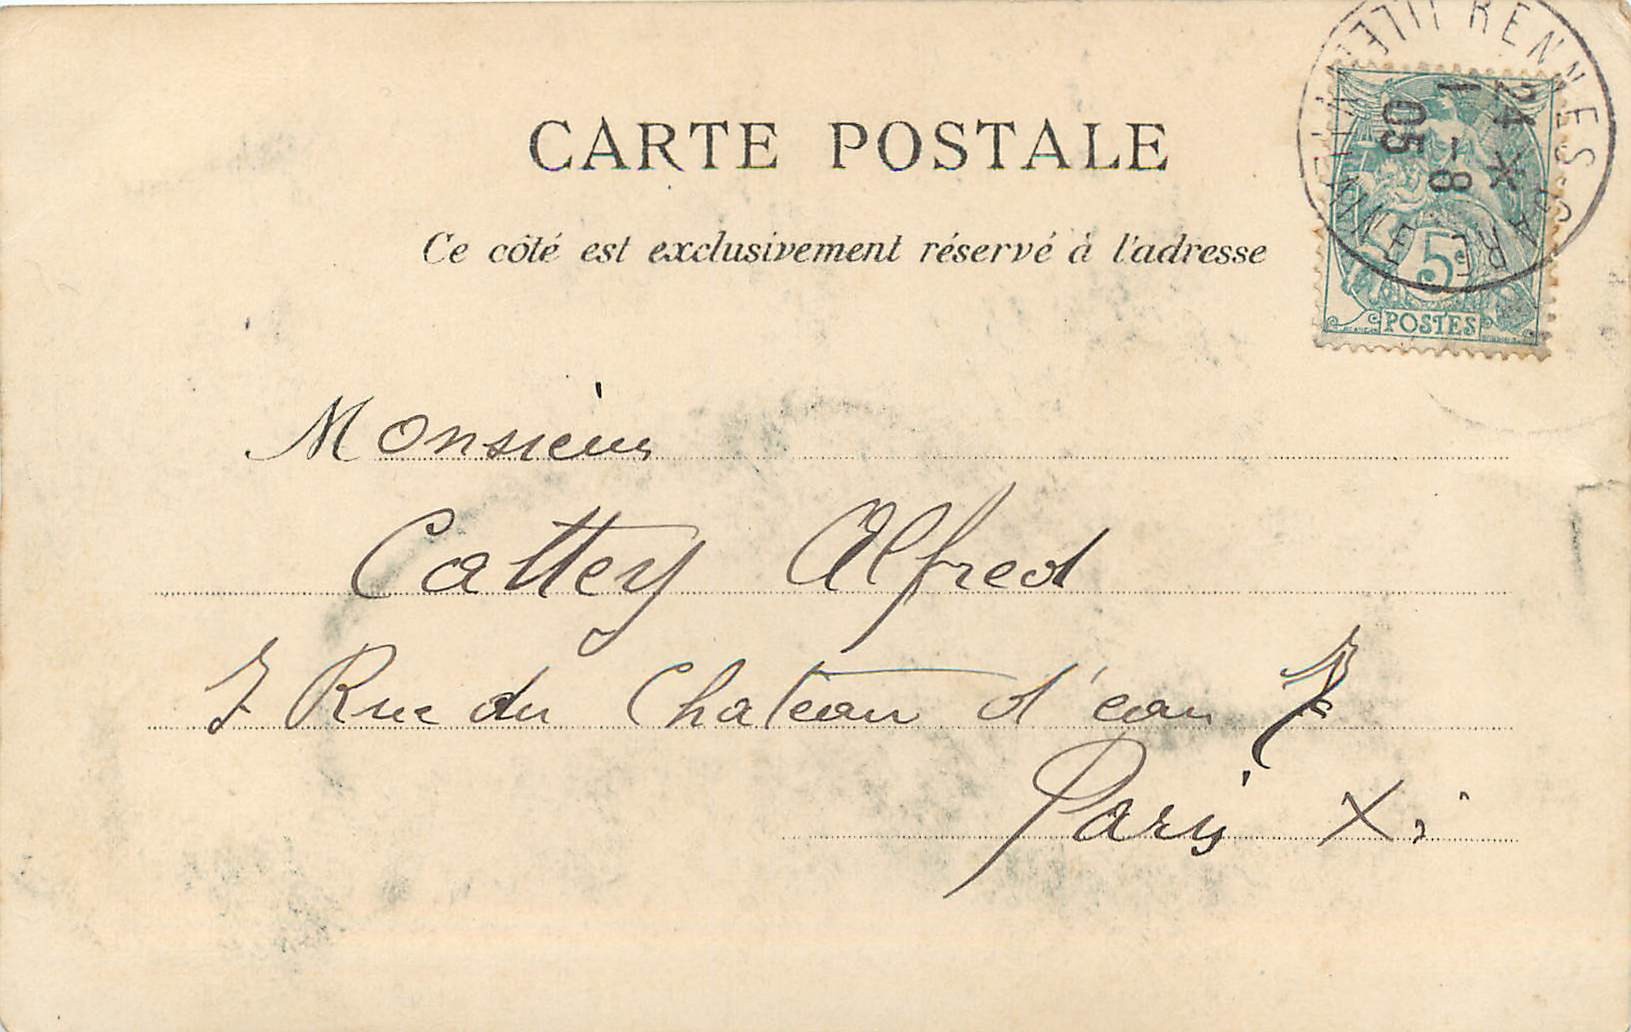 CARTE POSTALE
Ce côté est exclusivement réservé à l'adresse
RENNES GARE
ILLE-ET-VILAINE
24 *
1 - 8
05
5c
POSTES
Monsieur
Cattey Alfred
7 Rue du Chateau d'eau
Paris X